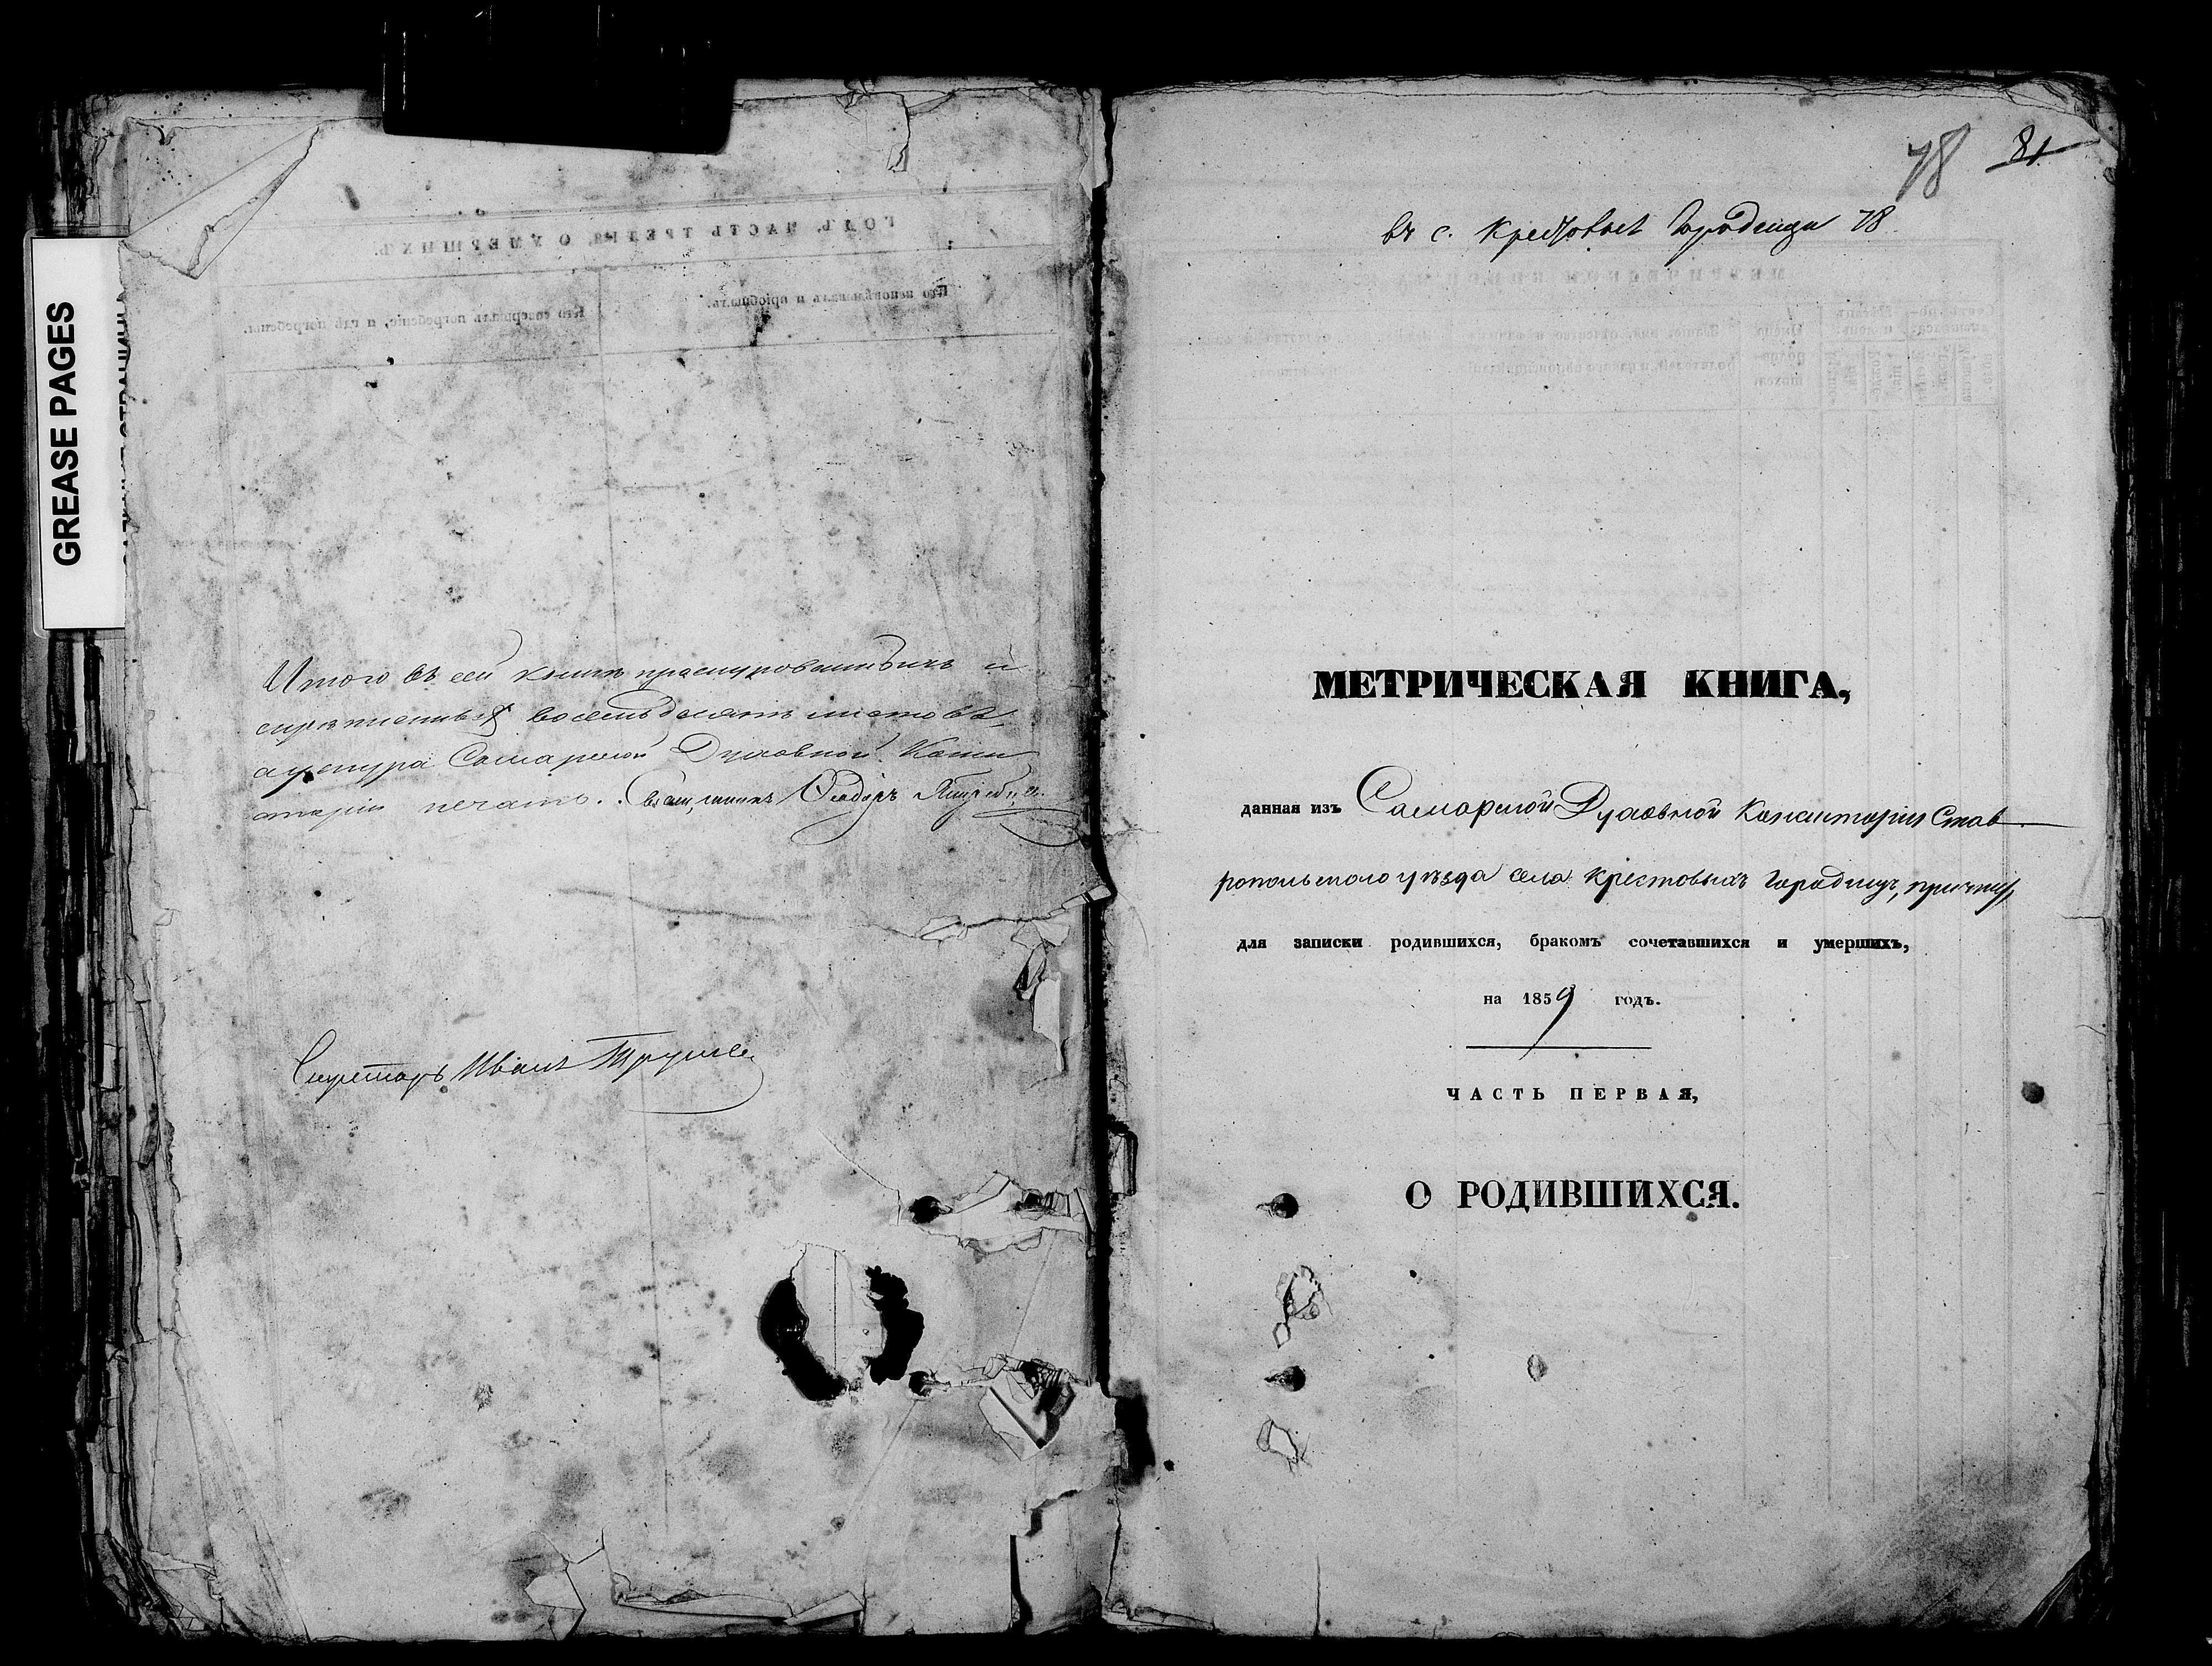 GREASE PAGES
Итого въ сей книгѣ прошнурованныхъ и
скрѣпленныхъ восемьдесятъ листовъ
а у шнура Самарской Духовной Конси
сторіи печать. Ѳеодоръ
Секретарь Иванъ
78 81
въ с. Крестовые Городищи 78
МЕТРИЧЕСКАЯ КНИГА,
данная изъ Самарской Духовной Консисторіи Став
ропольскаго уѣзда села Крестовыхъ Городищъ, причту,
для записки родившихся, бракомъ сочетавшихся и умершихъ,
на 1859 годъ.
ЧАСТЬ ПЕРВАЯ,
О РОДИВШИХСЯ.